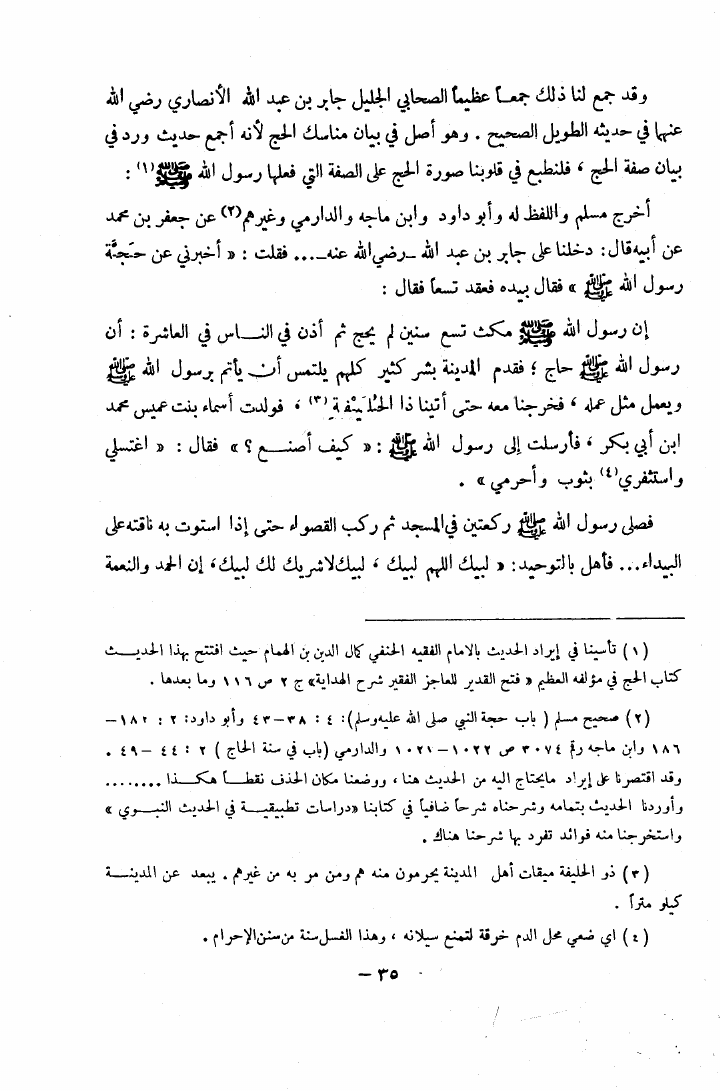 وقد جمع لنا ذلك جمعاً عظيماً الصحابي الجليل جابر بن عبد الله الأنصاري رضي الله
عنها في حديثه الطويل الصحيح . وهو أصل في بيان مناسك الحج لأنه أجمع حديث ورد في
بيان صفة الحج ، فلنطبع في قلوبنا صورة الحج على الصفة التي فعلها رسول الله ﷺ (١) :
أخرج مسلم واللفظ له وأبو داود وابن ماجه والدارمي وغيرهم (٢) عن جعفر بن محمد
عن أبيه قال : دخلنا على جابر بن عبد الله ـ رضي الله عنه ـ ... فقلت : « أخبرني عن حَجَّة
رسول الله ﷺ » فقال بيده فعقد تسعاً فقال :
إن رسول الله ﷺ مكث تسع سنين لم يحج ثم أذن في النـاس في العاشرة : أن
رسول الله ﷺ حاج ؛ فقدم المدينة بشر كثير كلهم يلتمس أن يأتم برسول الله ﷺ
ويعمل مثل عمله ، فخرجنا معه حتى أتينا ذا الحُلَيْفةِ (٣) ، فولدت أسماء بنت عميس محمد
ابن أبي بكر ، فأرسلت إلى رسول الله ﷺ : « كيف أصنـع ؟ » فقال : « اغتسلي
واستثفري (٤) بثوب وأحرمي » .
فصلى رسول الله ﷺ ركعتين في المسجد ثم ركب القصواء حتى إذا استوت به ناقته على
البيداء ... فأهل بالتوحيد : « لبيك اللهم لبيك ، لبيك لاشريك لك لبيك ، إن الحمد والنعمة
(١) تأسينا في إيراد الحديث بالامام الفقيه الحنفي كمال الدين بن الهمام حيث افتتح بهذا الحديـث
كتاب الحج في مؤلفه العظيم « فتح القدير للعاجز الفقير شرح الهداية» ج ٢ ص ١١٦ وما بعدها .
(٢) صحيح مسلم ( باب حجة النبي صلى الله عليه وسلم ) : ٤ : ٣٨ ـ ٤٣ وأبو داود : ٢ : ١٨٢ ـ
١٨٦ وابن ماجه رقم ٣٠٧٤ ص ١٠٢٢ ـ ١٠٢١ والدارمي (باب في سنة الحاج ) ٢ : ٤٤ ـ ٤٩ .
وقد اقتصرنا على إيراد مايحتاج اليه من الحديث هنا ، ووضعنا مكان الحذف نقطـاً هكـذا ........
وأوردنا الحديث بتمامه وشرحناه شرحاً ضافياً في كتابنا «دراسات تطبيقيـة في الحديث النبـوي »
واستخرجنا منه فوائد تفرد بها شرحنا هناك .
(٣) ذو الحليفة ميقات أهل المدينة يحرمون منه هم ومن مر به من غيرهم . يبعد عن المدينـة
كيلو متراً .
(٤) اي ضعي محل الدم خرقة لتمنع سيلانه ، وهذا الغسل سنة من سنن الإحرام .
٣٥ ـ